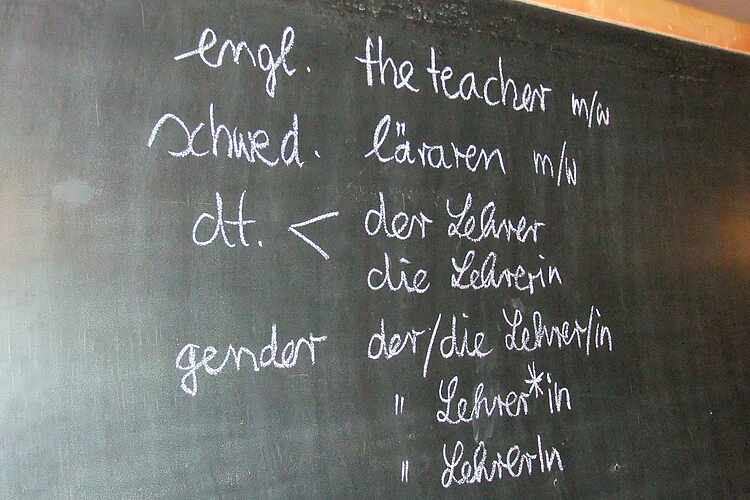 engl. the teacher m/w
schwed. läraren m/w
dt. < der Lehrer
die Lehrerin
gender der/die Lehrer/in
" Lehrer*in
" LehrerIn